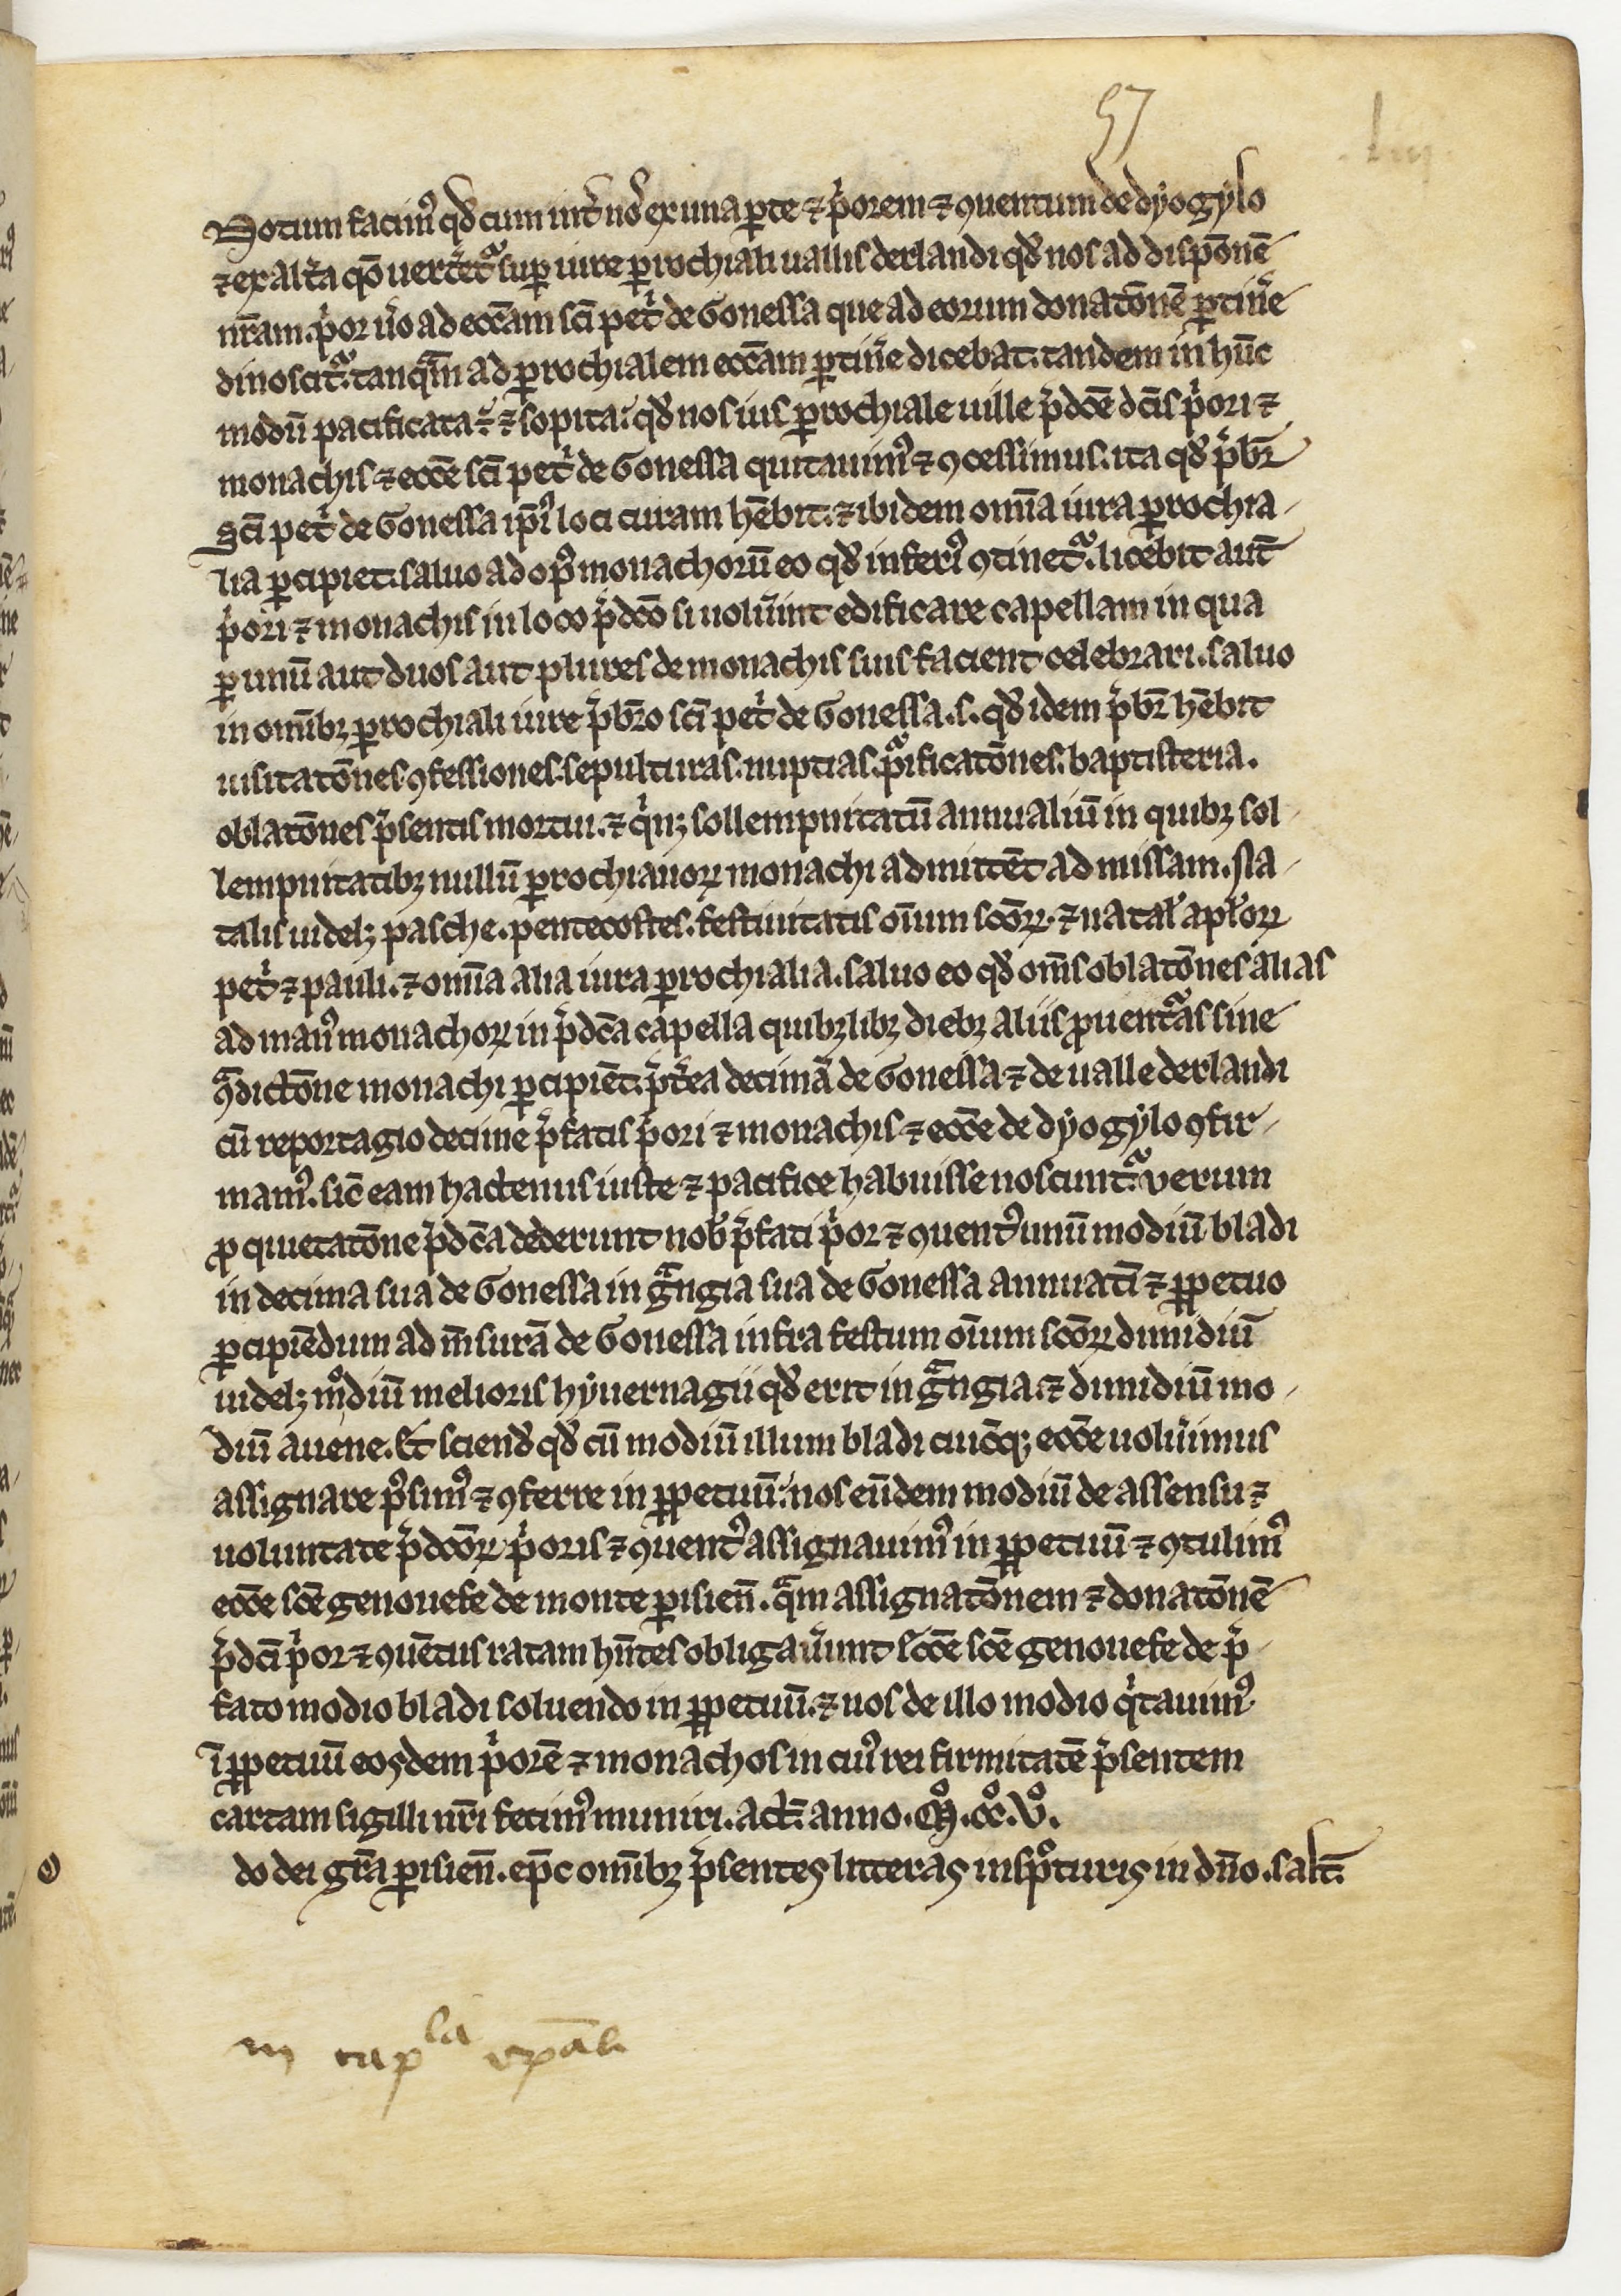 57
Notum facimꝰ qd̛ cum int̛ nos̛ ex una ꝑte ⁊ p̛orem ⁊ ꝯuentum de dyogylo
⁊ ex alt̛a q̄o uert̛et᷑ suꝑ iure ꝑrochiali uallis derlandi qd̛ nos ad dispōnē
nr̄am. p̛or ưo ad ecc̄am sc̄i pet̛ de Gonessa que ad eorum donatōnē ꝑtin̛e
dinoscit᷑. tanqᷓm ad ꝑrochialem ecc̄am ꝑtin̛e dicebat. tandem in hūc
modū pacificata ÷ ⁊ sopita. qd̛ nos ius ꝑrochiale uille p̛dc̄e dc̄is p̛ori ⁊
monachis ⁊ ecc̄e sc̄i pet̛ de Gonessa quitauimꝰ ⁊ ꝯcessimus. ita qd̛ p̛br̄
Sc̄i pet̛ de Gonessa ip̄iꝰ loci curam hēbit. ⁊ ibidem om̄ia iura ꝑrochia-
lia ꝑcipiet. saluo ad opꝰ monachorū eo qd̛ inferiꝰ ꝯtinet᷑. licebit aut̄
p̛ori ⁊ monachis in loco p̛dc̄o si uolưint edificare capellam in qua
ꝑ unū aut duos aut plures de monachis suis facient celebrari. saluo
in om̄ibꝫ ꝑrochiali iure p̛br̄o sc̄i pet̛ de Gonessa. s. qd̛ idem p̛br̄ hēbit
uisitatōnes ꝯfessiones. sepulturas. nuptias. p᷑ificatōnes. baptisteria.
oblatōnes p̛sentis mortui. ⁊ q̛nꝫ sollempnitatū annualiū in quibꝫ sol-
lempnitatibꝫ nullū ꝑrochianoꝝ monachi admittēt ad missam. Na-
talis uidelꝫ pasche. pentecostes. festiuitatis oīum sc̄oꝝ. ⁊ natal̛ apl̛oꝝ
pet̛ ⁊ pauli. ⁊ om̄ia alia iura ꝑrochialia. saluo eo qd̛ om̄s oblatōnes alias
ad manꝰ monachoꝝ in p̛dc̄a capella quibꝫlibꝫ diebꝫ aliis ꝓuent᷑as sine
ꝯᷓdictōne monachi ꝑcipiēt. p̛t̛ea decimā de Gonessa ⁊ de ualle derlandi
cū reportagio decime p̛fatis p̛ori ⁊ monachis ⁊ ecc̄e de dyogylo ꝯfir-
mamꝰ. sic̄ eam hactenus iuste ⁊ pacifice habuisse noscunt᷑. verum
ꝓ quietatōne p̛dc̄a dederunt nob̛ p̛fati p̛or ⁊ ꝯuentꝰ unū modiū bladi
in decima sua de Gonessa in gᷓngia sua de Gonessa annuatī ⁊ ꝑpetuo
ꝑcipiēdum ad m̄surā de Gonessa infra festum oīum sc̄oꝝ dimidiū
uidelꝫ modiū melioris hyuernagii qd̛ erit in gᷓngia. ⁊ dimidiū mo-
diū auene. Et sciend̛ qd̛ cū modiū illum bladi cuicūqꝫ ecc̄e uolưimus
assignare pꝰsimꝰ ⁊ ꝯferre in ꝑpetuū. nos eūdem modiū de assensu ⁊
uoluntate p̛dc̄oꝝ p̛oris ⁊ ꝯuentꝰ assignauimꝰ in ꝑpetuū ⁊ ꝯtulimꝰ
ecc̄e sc̄e genouefe de monte ꝑisien̄. qᷓm assignatōnem ⁊ donatōnē
p̛dc̄i p̛or ⁊ ꝯuētus ratam hn̄tes obligaưunt se ecc̄e sc̄e genouefe de p̛-
fato modio bladi soluendo in ꝑpetuū. ⁊ nos de illo modio q̛tauimꝰ
ī ꝑpetuū eosdem p̛orē ⁊ monachos in cuiꝰ rei firmitatē p̛sentem
cartam sigilli nr̄i fecimꝰ muniri. act̄ anno. Mͦ. ccͦ. vͦ.
o do dei gr̄a ꝑisien̄. ep̄c om̄ibꝫ p̛sentes litteras insp̛cturis in dn̄o. salt̄
in capˡᵃ ep̄ali